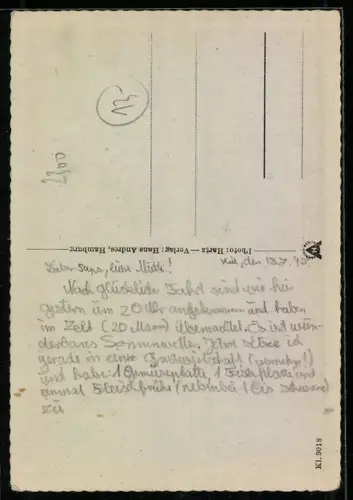 Photo: Hartz — Verlag: Hans Andres, Hamburg
Kiel, den 13.7.
Lieber Papa, liebe Mutti!
Nach glücklicher Fahrt sind wir hier
gestern um 20 Uhr angekommen und haben
im Zelt (20 Mann) übernachtet. Es ist
Sonnenwetter. Jetzt sitze ich
gerade in einer Gastwirtschaft (vornehm!)
und habe: 1 Gemüseplatte, 1 Fischplatte und
einmal Fleischbrühe (nebenbei 1 Eis
zu
KI. 9018